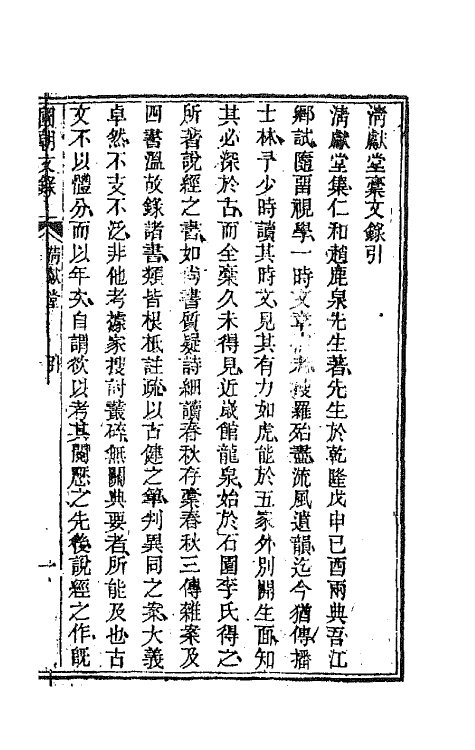 清獻堂藁文錄引
清獻堂集仁和趙鹿泉先生著先生於乾隆戊申己酉兩典吾江
鄉試隨畱視學一時文章搜羅殆盡流風遺韻迄今猶傳播
士林予少時讀其時文見其有力如虎能於五家外別開生面知
其必深於古而全藁久未得見近歲館龍泉始於石園李氏得之
所著說經之書如尚書質疑詩細讀春秋存藁春秋三傳雜案及
四書溫故錄諸書類皆根柢註疏以古健之筆判異同之案大義
卓然不支不泛非他考據家搜討叢碎無關典要者所能及也古
文不以體分而以年次自謂欲以考其閱歷之先後說經之作旣
國朝文錄 清獻堂 引 一